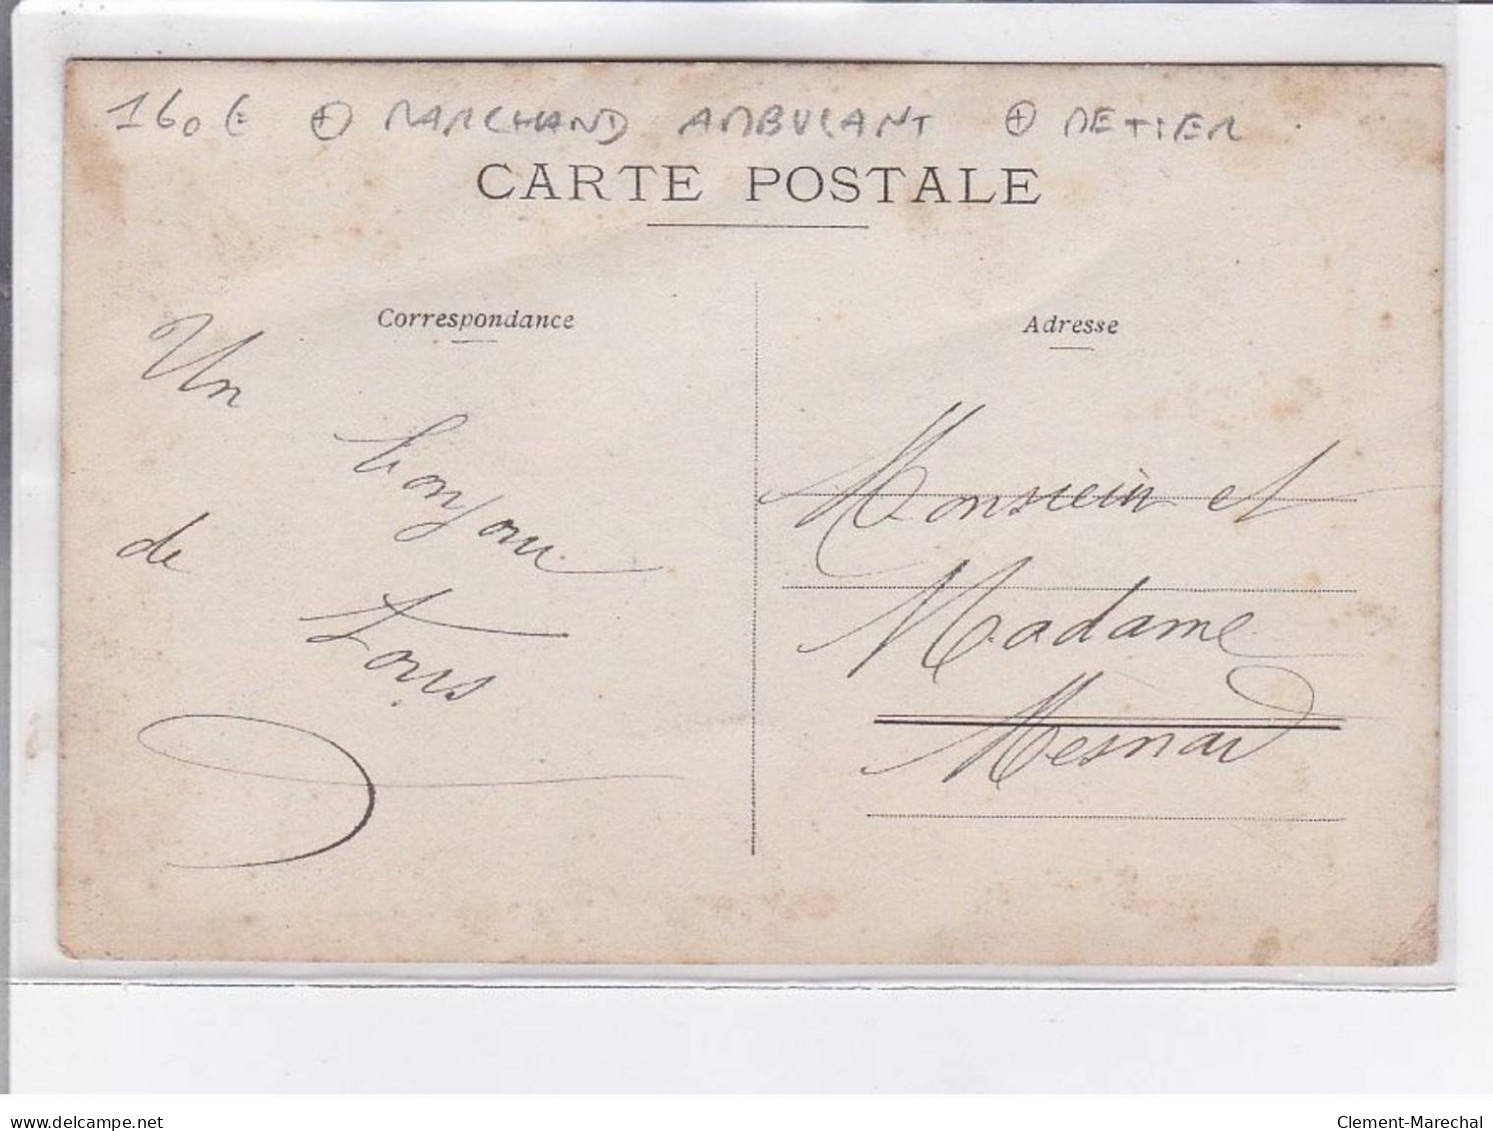 160 € ⊕ MARCHAND AMBULANT ⊕ METIER
CARTE POSTALE
Correspondance
Un
bonjour
de
Louis
Adresse
Monsieur et
Madame
Mesnard
delcampe.net
Clement-Marechal